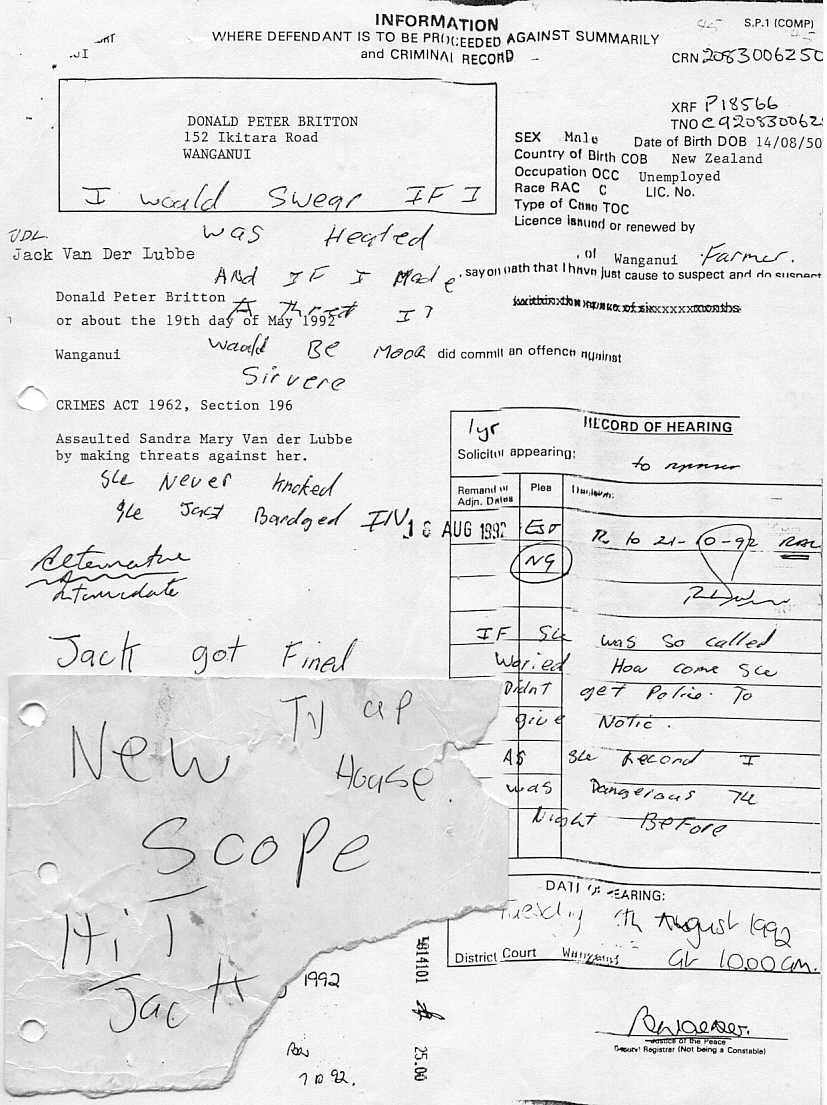 INFORMATION
S.P.1 (COMP)
WHERE DEFENDANT IS TO BE PROCEEDED AGAINST SUMMARILY
and CRIMINAL RECORD
CRN 2083006250
XRF P18566
TNO
DONALD PETER BRITTON
152 Ikitara Road
WANGANUI
SEX Male Date of Birth DOB 14/08/50
Country of Birth COB New Zealand
Occupation OCC Unemployed
Race RAC C LIC. No.
Type of TOC
Licence issued or renewed by
I would Swear IF I
was Heated
JDL
Jack Van Der Lubbe
, of Wanganui Farmer.
And IF I Made
, say on oath that I have just cause to suspect and do suspect
Donald Peter Britton
A Threat IT
or about the 19th day of May 1992
Wanganui
would BE MOOR
did commit an offence against
Sirvere
CRIMES ACT 1962, Section 196
Assaulted Sandra Mary Van der Lubbe
by making threats against her.
She Never knoked
She Jast Bardged IN
Alternative
Intimidate
Jack got Fined
RECORD OF HEARING
1yr
Solicitor appearing:
Remand or
Adjn. Dates
Plea
18 AUG 1992
NG
R to 21-10-92
IF She was So called
Woried How come She
Didnt get Police. To
give Notic.
AS She Recond I
was Dangerous The
Night BeFore
TV up
House
New
Scope
HiT
Jack
1992
4814101
25.00
7 10 92.
DATE OF HEARING:
Tuesday August 1992
District Court at 10.00 am.
Justice of the Peace
Deputy Registrar (Not being a Constable)